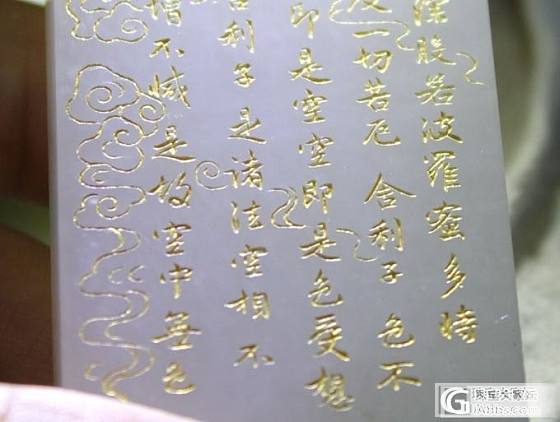 深般若波羅蜜多時
一切苦厄舍利子色不
即是空空即是色受想
利子是諸法空相不
增不減是故空中無色
GIAbbs.com